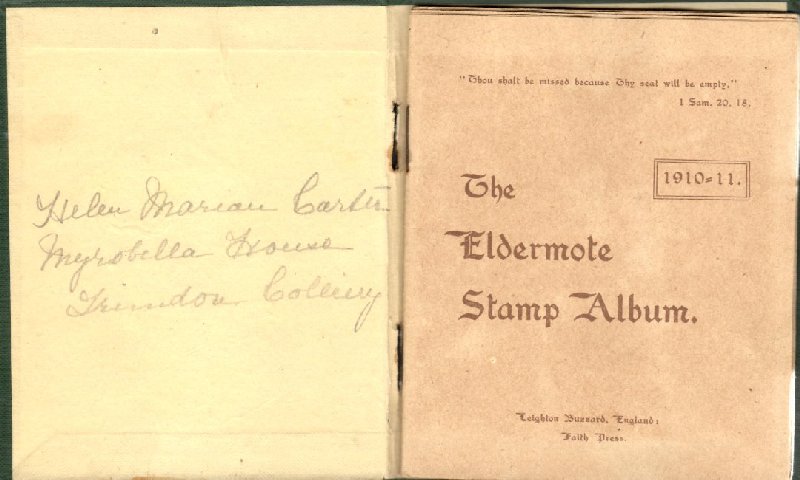 Helen Marian Carter
Myrobella House
Trimdon Colliery
"Thou shalt be missed because Thy seat will be empty."
1 Sam. 20. 18.
1910-11.
The
Eldermote
Stamp Album.
Leighton Buzzard, England:
Faith Press.